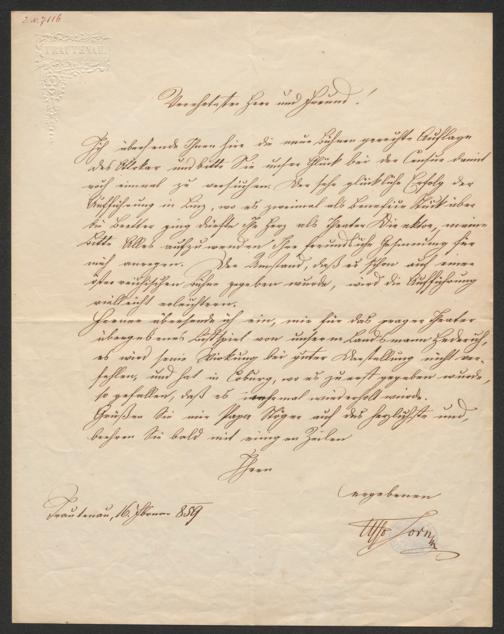 Z.N. 7116
TRAUTENAU.
Verehrtester Herr und Freund!
Ich übersende Ihnen hier die neue bühnengerechte Auflage
des und bitte Sie unser Glück bei der Censur damit
noch einmal zu versuchen. Der sehr glückliche Erfolg der
Aufführung in Linz, wo es zweimal als Benefice Stück über
die Bretter ging dürfte Ihr Herz als Theater Direktor, meine
Bitte Alles aufzuwenden Ihre freundliche Gesinnung für
mich anregen. Der Umstand, daß es schon auf einer
österreichischen Bühne gegeben wurde, wird die Aufführung
vielleicht erleichtern.
Ferner übersende ich ein, mir für das prager Theater
übergebenes Lustspiel von unserem Landsmann
es wird seine Wirkung bei guter Darstellung nicht ver-
fehlen, und hat in Coburg, wo es zuerst gegeben wurde,
so gefallen, daß es mehrmal wiederholt wurde.
Grüßen Sie mir Papa Stöger auf das herzlichste und,
beehren Sie bald mit einigen Zeilen
Ihren
ergebenen
Trautenau, 16. 859
Uffo Horn